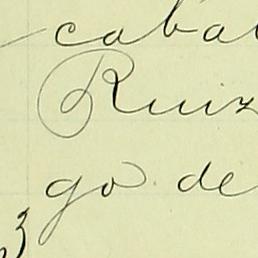 cabal
Ruiz
go de
3